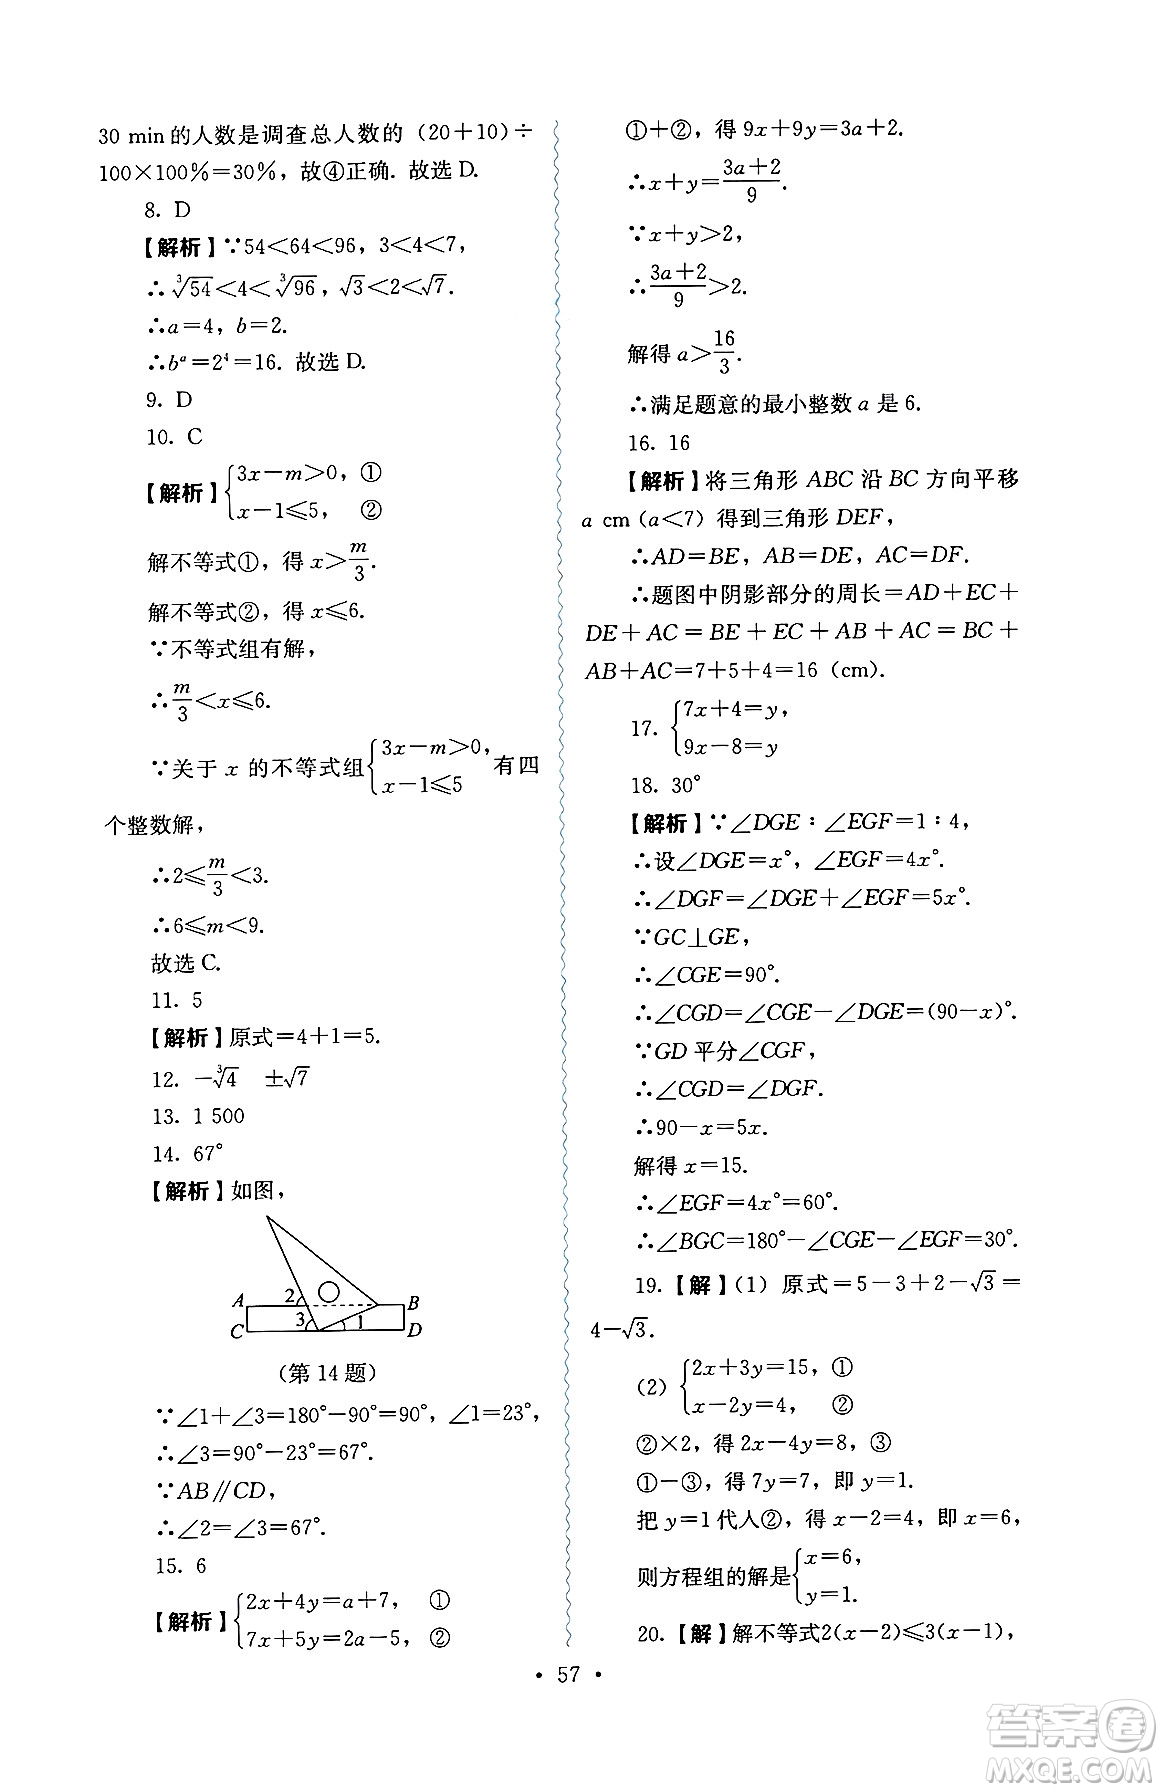 30 min的人数是调查总人数的（20＋10）÷
100×100%＝30%，故④正确. 故选 D.
8. D
【解析】∵54＜64＜96，3＜4＜7，
∴∛54＜4＜∛96，√3＜2＜√7.
∴a＝4，b＝2.
∴bᵃ＝2⁴＝16. 故选 D.
9. D
10. C
【解析】{3x－m＞0，①
x－1≤5，②
解不等式①，得 x＞m/3.
解不等式②，得 x≤6.
∵不等式组有解，
∴m/3＜x≤6.
∵关于 x 的不等式组{3x－m＞0，
x－1≤5 有四
个整数解，
∴2≤m/3＜3.
∴6≤m＜9.
故选 C.
11. 5
【解析】原式＝4＋1＝5.
12. －∛4 ±√7
13. 1 500
14. 67°
【解析】如图，
A 2 B
C 3 1 D
（第 14 题）
∵∠1＋∠3＝180°－90°＝90°，∠1＝23°，
∴∠3＝90°－23°＝67°.
∵AB∥CD，
∴∠2＝∠3＝67°.
15. 6
【解析】{2x＋4y＝a＋7，①
7x＋5y＝2a－5，②
①＋②，得 9x＋9y＝3a＋2.
∴x＋y＝(3a＋2)/9.
∵x＋y＞2，
∴(3a＋2)/9＞2.
解得 a＞16/3.
∴满足题意的最小整数 a 是 6.
16. 16
【解析】将三角形 ABC 沿 BC 方向平移
a cm（a＜7）得到三角形 DEF，
∴AD＝BE，AB＝DE，AC＝DF.
∴题图中阴影部分的周长＝AD＋EC＋
DE＋AC＝BE＋EC＋AB＋AC＝BC＋
AB＋AC＝7＋5＋4＝16（cm）.
17. {7x＋4＝y，
9x－8＝y
18. 30°
【解析】∵∠DGE：∠EGF＝1：4，
∴设∠DGE＝x°，∠EGF＝4x°.
∴∠DGF＝∠DGE＋∠EGF＝5x°.
∵GC⊥GE，
∴∠CGE＝90°.
∴∠CGD＝∠CGE－∠DGE＝(90－x)°.
∵GD 平分∠CGF，
∴∠CGD＝∠DGF.
∴90－x＝5x.
解得 x＝15.
∴∠EGF＝4x°＝60°.
∴∠BGC＝180°－∠CGE－∠EGF＝30°.
19.【解】（1）原式＝5－3＋2－√3＝
4－√3.
（2）{2x＋3y＝15，①
x－2y＝4，②
②×2，得 2x－4y＝8，③
①－③，得 7y＝7，即 y＝1.
把 y＝1 代人②，得 x－2＝4，即 x＝6，
则方程组的解是{x＝6，
y＝1.
20.【解】解不等式2(x－2)≤3(x－1)，
• 57 •
答案圈
MXQE.COM